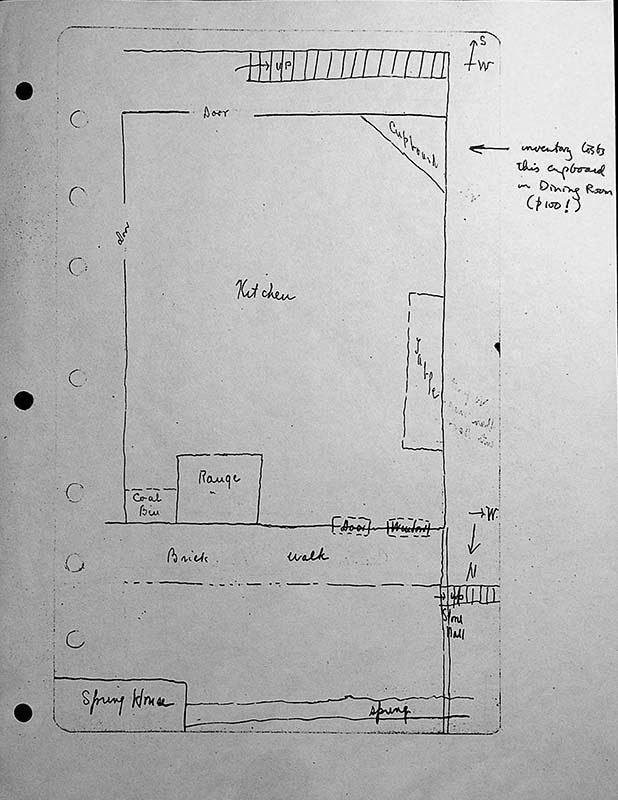 S
UP
W
Door
Cupboard
inventory lists
this cupboard
in Dining Room
($100!)
Door
Kitchen
Table
Range
Coal
Bin
W
Door
Window
Brick walk
N
up
Stone
Wall
Spring House
spring